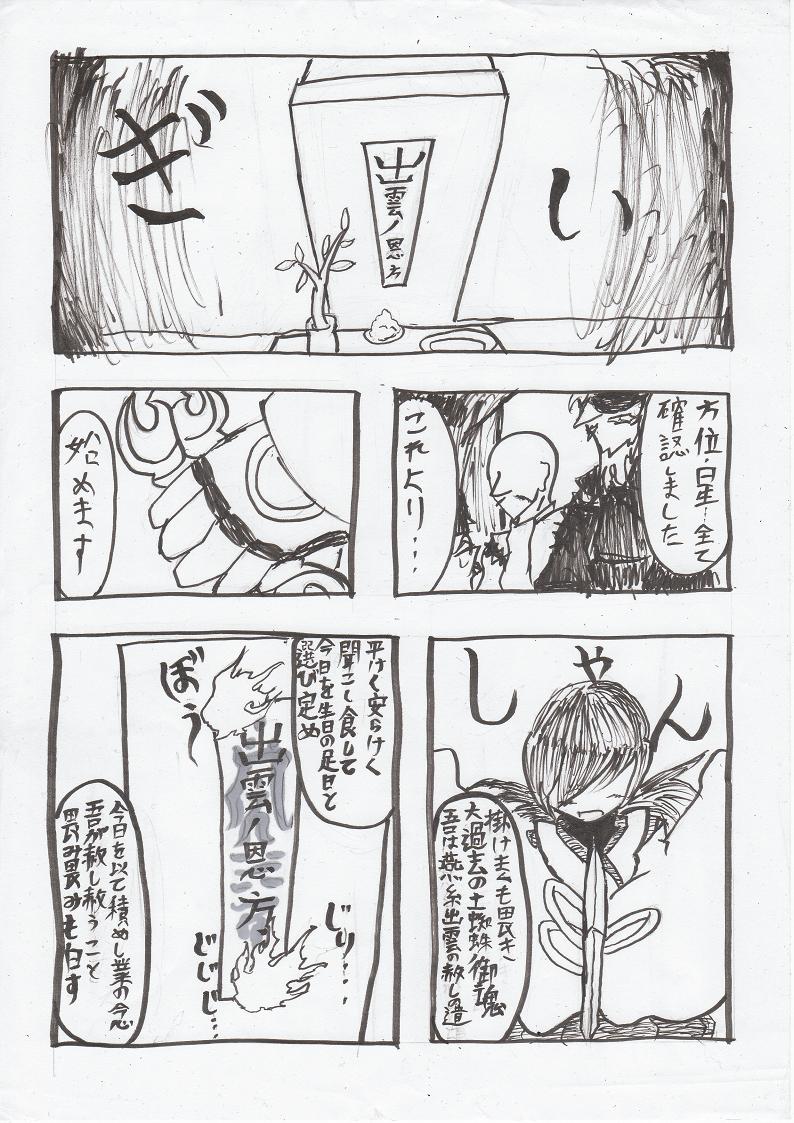 ぎ
い
出雲ノ恩方
方位・星・全て
確認しました
これより…
始めます
しゃん
掛けまくも畏き
大過去の土蜘蛛御魂
吾は燕糸出雲の赦しの道
平けく安らけく
聞こし食して
今日を生日の足日と
選び定め
ぼう
出雲ノ恩方
じり…
じじじ…
今日を以て積めし業の念
吾が赦し赦うこと
畏み畏みも白す